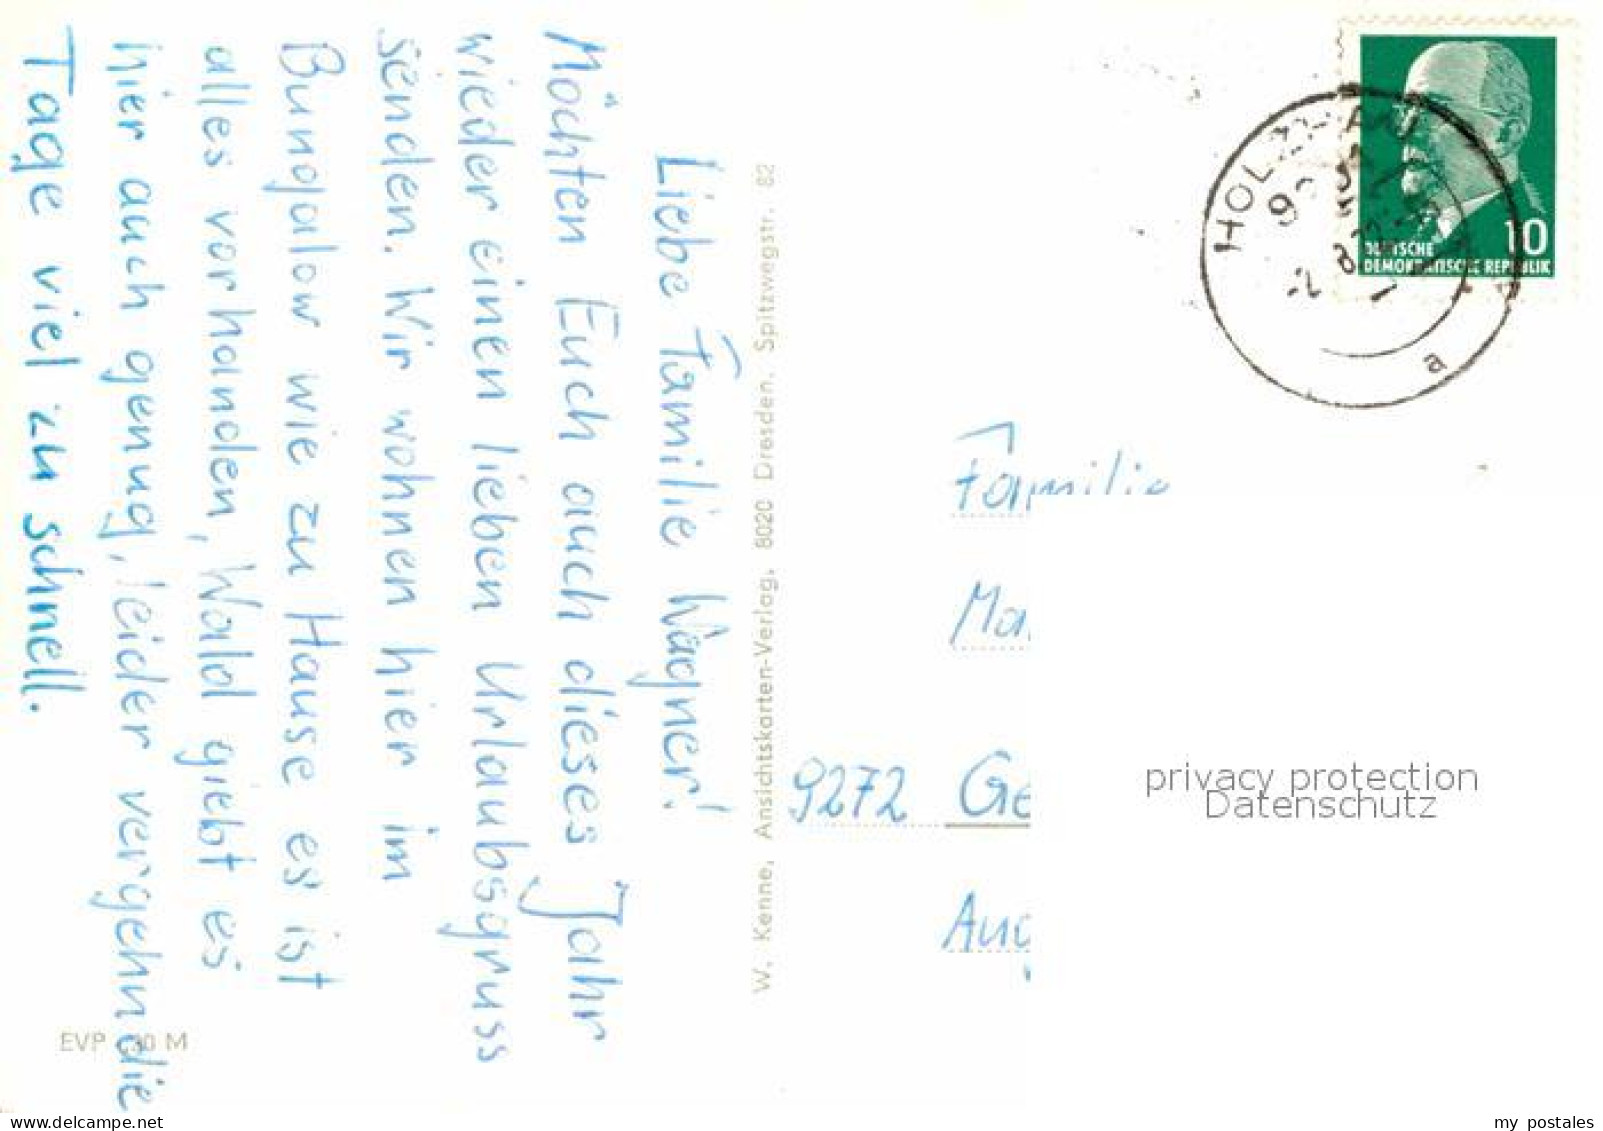 Liebe Familie Wagner!
Möchten Euch auch dieses Jahr
wieder einen lieben Urlaubsgruss
senden. Wir wohnen hier im
Bungalow wie zu Hause es ist
alles vorhanden, Wald giebt es
hier auch genug, leider vergehn die
Tage viel zu schnell.
EVP -,30 M
W. Kenne, Ansichtskarten-Verlag, 8020 Dresden, Spitzwegstr. 82
10
DEUTSCHE
DEMOKRATISCHE REPUBLIK
HOLZHAU
a
Familie
9272 Ge
privacy protection
Datenschutz
my postales